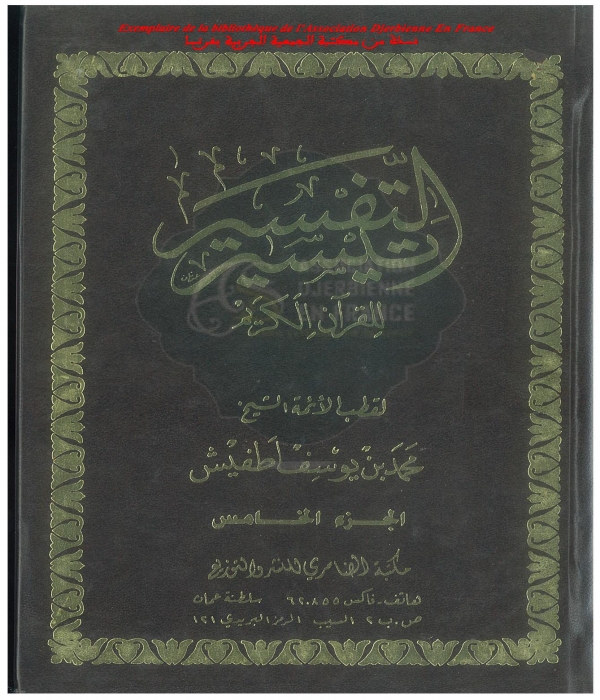 Exemplaire de la bibliothèque de l'Association Djerbienne En France.
نسخة من مكتبة الجمعية الجربية بفرنسا
تيسير التفسير
للقرآن الكريم
DJERBIENNE
EN FRANCE
لقطب الأئمة الشيخ
محمد بن يوسف اطفيش
الجزء الخامس
مكتبة الضامري للنشر والتوزيع
هاتف - فاكس ٦٢٠٨٥٥ سلطنة عمان
ص.ب ٢ السيب الرمز البريدي ١٢١